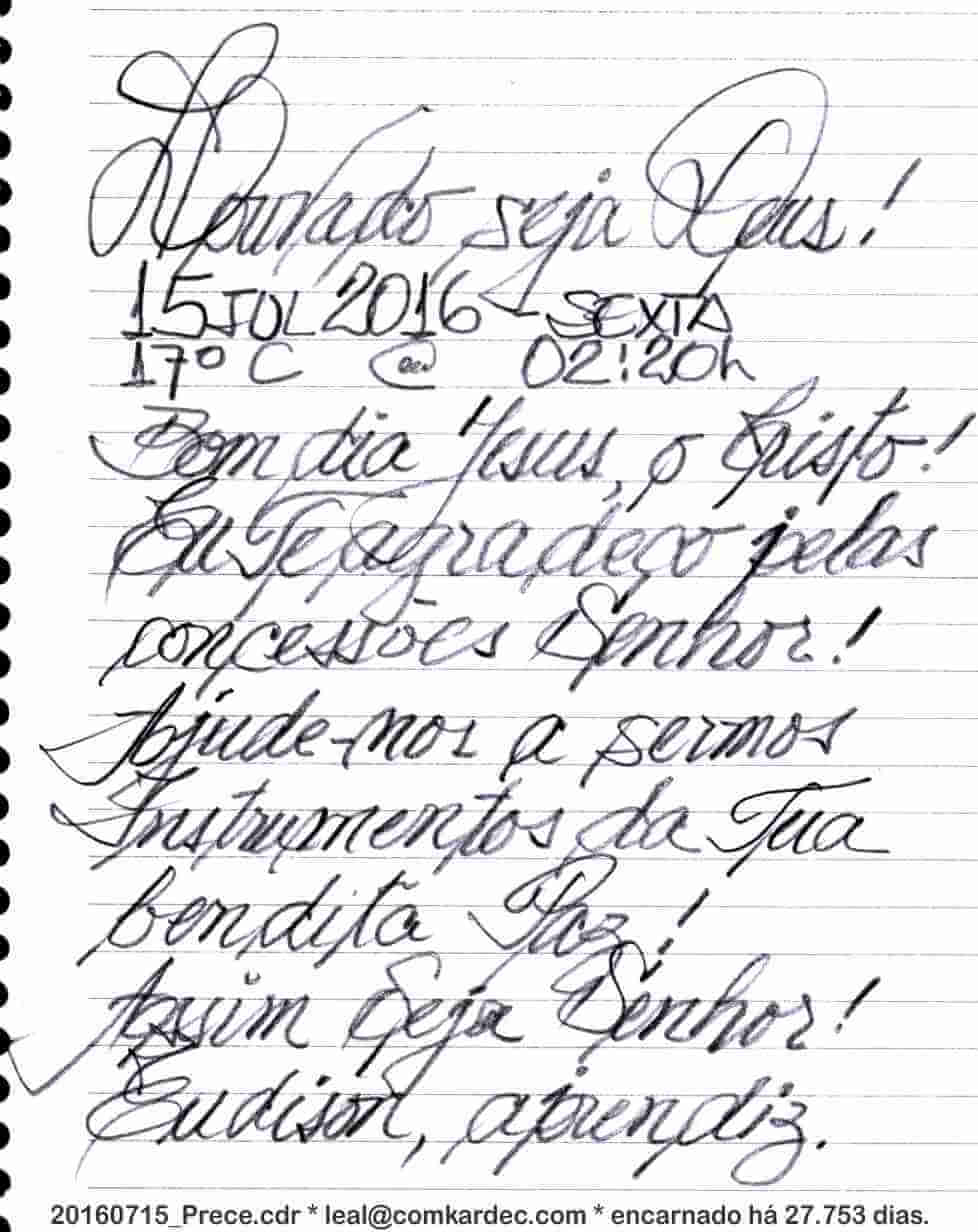 Louvado seja Deus!
15 JUL 2016 - SEXTA
17º C @ 02:20h
Bom dia Jesus, o Cristo!
Eu Te agradeço pelas
concessões Senhor!
Ajude-nos a sermos
Instrumentos da Tua
bendita Paz!
Assim Seja Senhor!
Eudison, aprendiz.
20160715_Prece.cdr * leal@comkardec.com * encarnado há 27.753 dias.